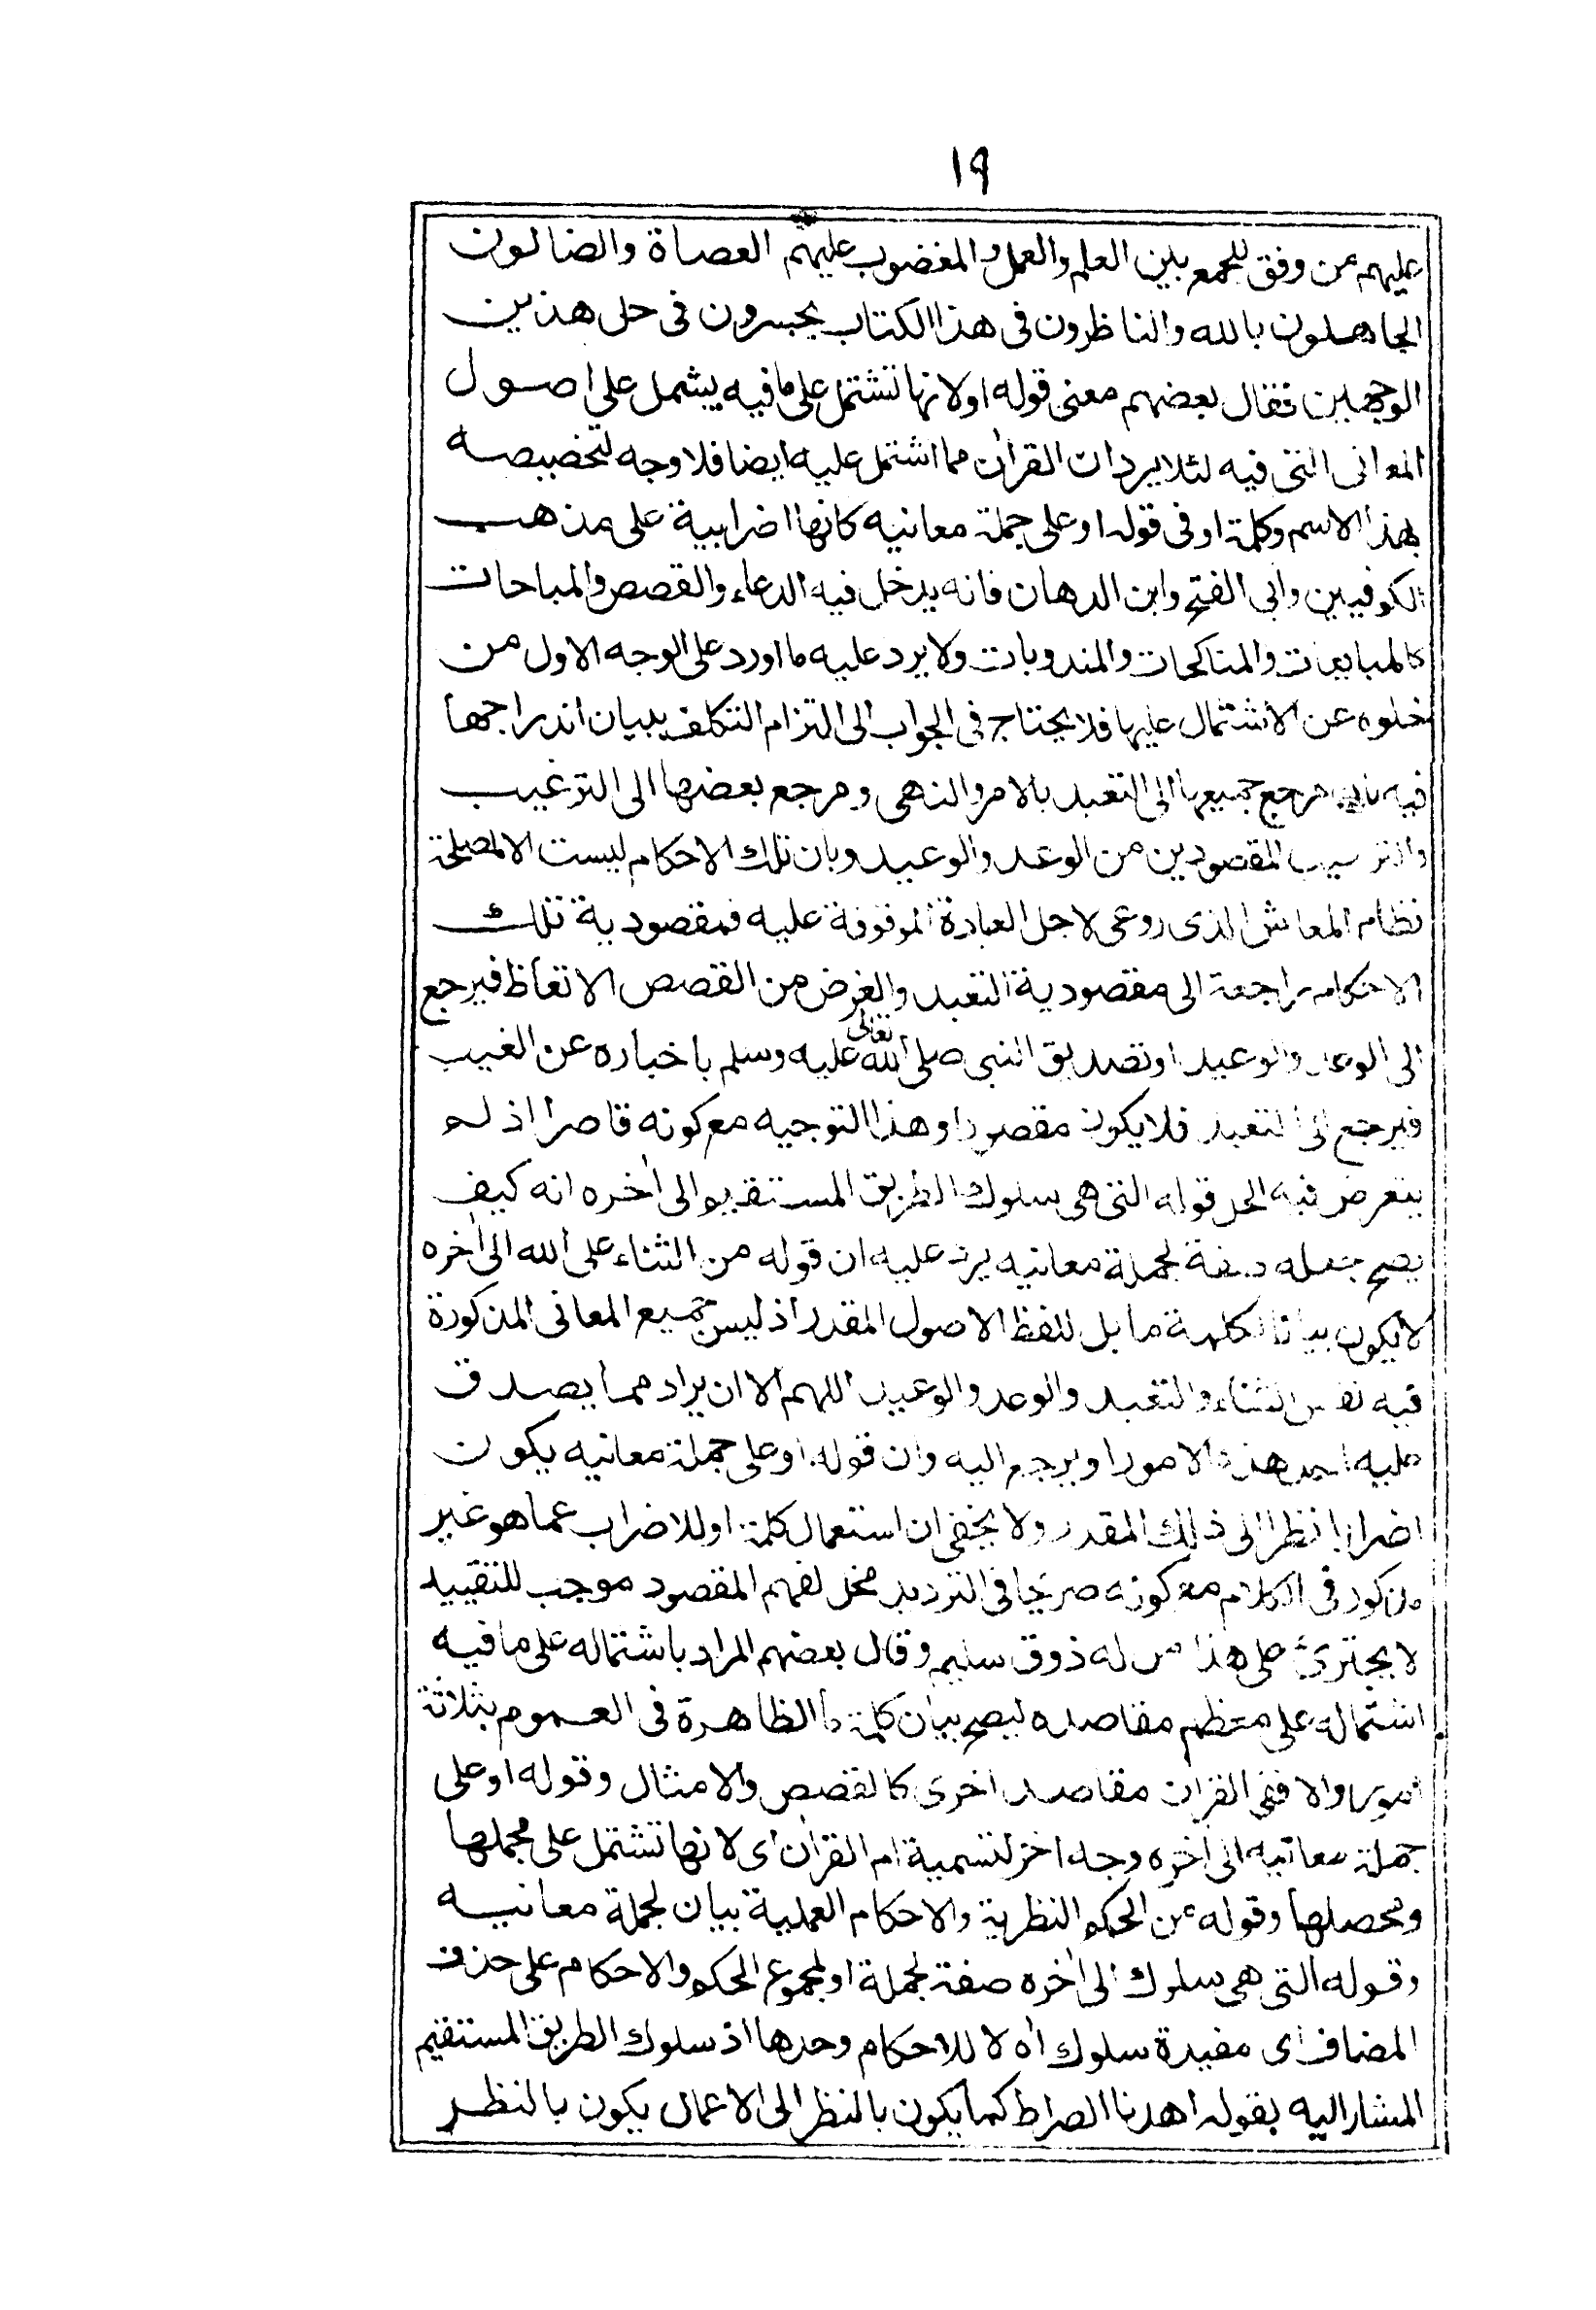 ١٩
عليهم من وفق للجمع بين العلم والعمل والمغضوب عليهم العصاة والضالون
الجاهلون بالله والناظرون فى هذا الكتاب يحبسرون فى حل هذين
الوجهين فقال بعضهم معنى قوله اولانها تشتمل على ما فيه يشمل على اصول
المعانى التى فيه لئلا يرد ان القران مما اشتمل عليه ايضا فلا وجه لتخصيصه
بهذا الاسم وكلمة او فى قوله او على جملة معانيه كانها اضرابية على مذهب
الكوفيين وابى الفتح وابن الدهان فانه يدخل فيه الدعاء والقصص والمباحات
كالمبايعات والمناكحات والمندوبات ولا يرد عليه ما اورد على الوجه الاول من
خلوه عن الاشتمال عليها فلا يحتاج فى الجواب الى التزام التكلف ببيان اندراجها
فيه بان مرجع جميعها الى التعبد بالامر والنهى ومرجع بعضها الى الترغيب
والترهيب المقصودين من الوعد والوعيد وبان تلك الاحكام ليست الا لمصلحة
نظام المعاش الذى روعى لاجل العبادة الموقوفة عليه فمقصودية تلك
الاحكام راجعة الى مقصودية التعبد والغرض من القصص الاتعاظ فيرجع
الى الوعد والوعيد او تصديق النبى صلى الله تعالى عليه وسلم باخباره عن الغيب
فيرجع الى التعبد فلا يكون مقصودا وهذا التوجيه مع كونه قاصرا اذ لم
يتعرض فيه لحل قوله التى هى سلوك الطريق المستقيم الى اخره انه كيف
يصح جعله صفة لجملة معانيه يرد عليه ان قوله من الثناء على الله الى اخره
لا يكون بيانا لكلمة ما بل للفظ الاصول المقدر اذ ليس جميع المعانى المذكورة
فيه نفس الثناء والتعبد والوعد والوعيد اللهم الا ان يراد مما يصدق
عليه احد هذه الامور او يرجع اليه وان قوله او على جملة معانيه يكون
اضرابا نظرا الى ذلك المقدر ولا يخفى ان استعمال كلمة او للاضراب عما هو غير
مذكور فى الكلام مع كونه صريحا فى الترديد مخل لفهم المقصود موجب للتقييد
لا يجترئ على هذا من له ذوق سليم وقال بعضهم المراد باشتماله على ما فيه
اشتماله على معظم مقاصده ليصح بيان كلمة ما الظاهرة فى العموم بثلاثة
امور والا ففى القران مقاصد اخرى كالقصص والامثال وقوله او على
جملة معانيه الى اخره وجه اخر لتسمية ام القران اى لانها تشتمل على مجملها
ومحصلها وقوله من الحكم النظرية والاحكام العملية بيان لجملة معانيه
وقوله التى هى سلوك الى اخره صفة لجملة او لمجموع الحكم والاحكام على حذف
المضاف اى مفيدة سلوك اه لا للاحكام وحدها اذ سلوك الطريق المستقيم
المشار اليه بقوله اهدنا الصراط كما يكون بالنظر الى الاعمال يكون بالنظر